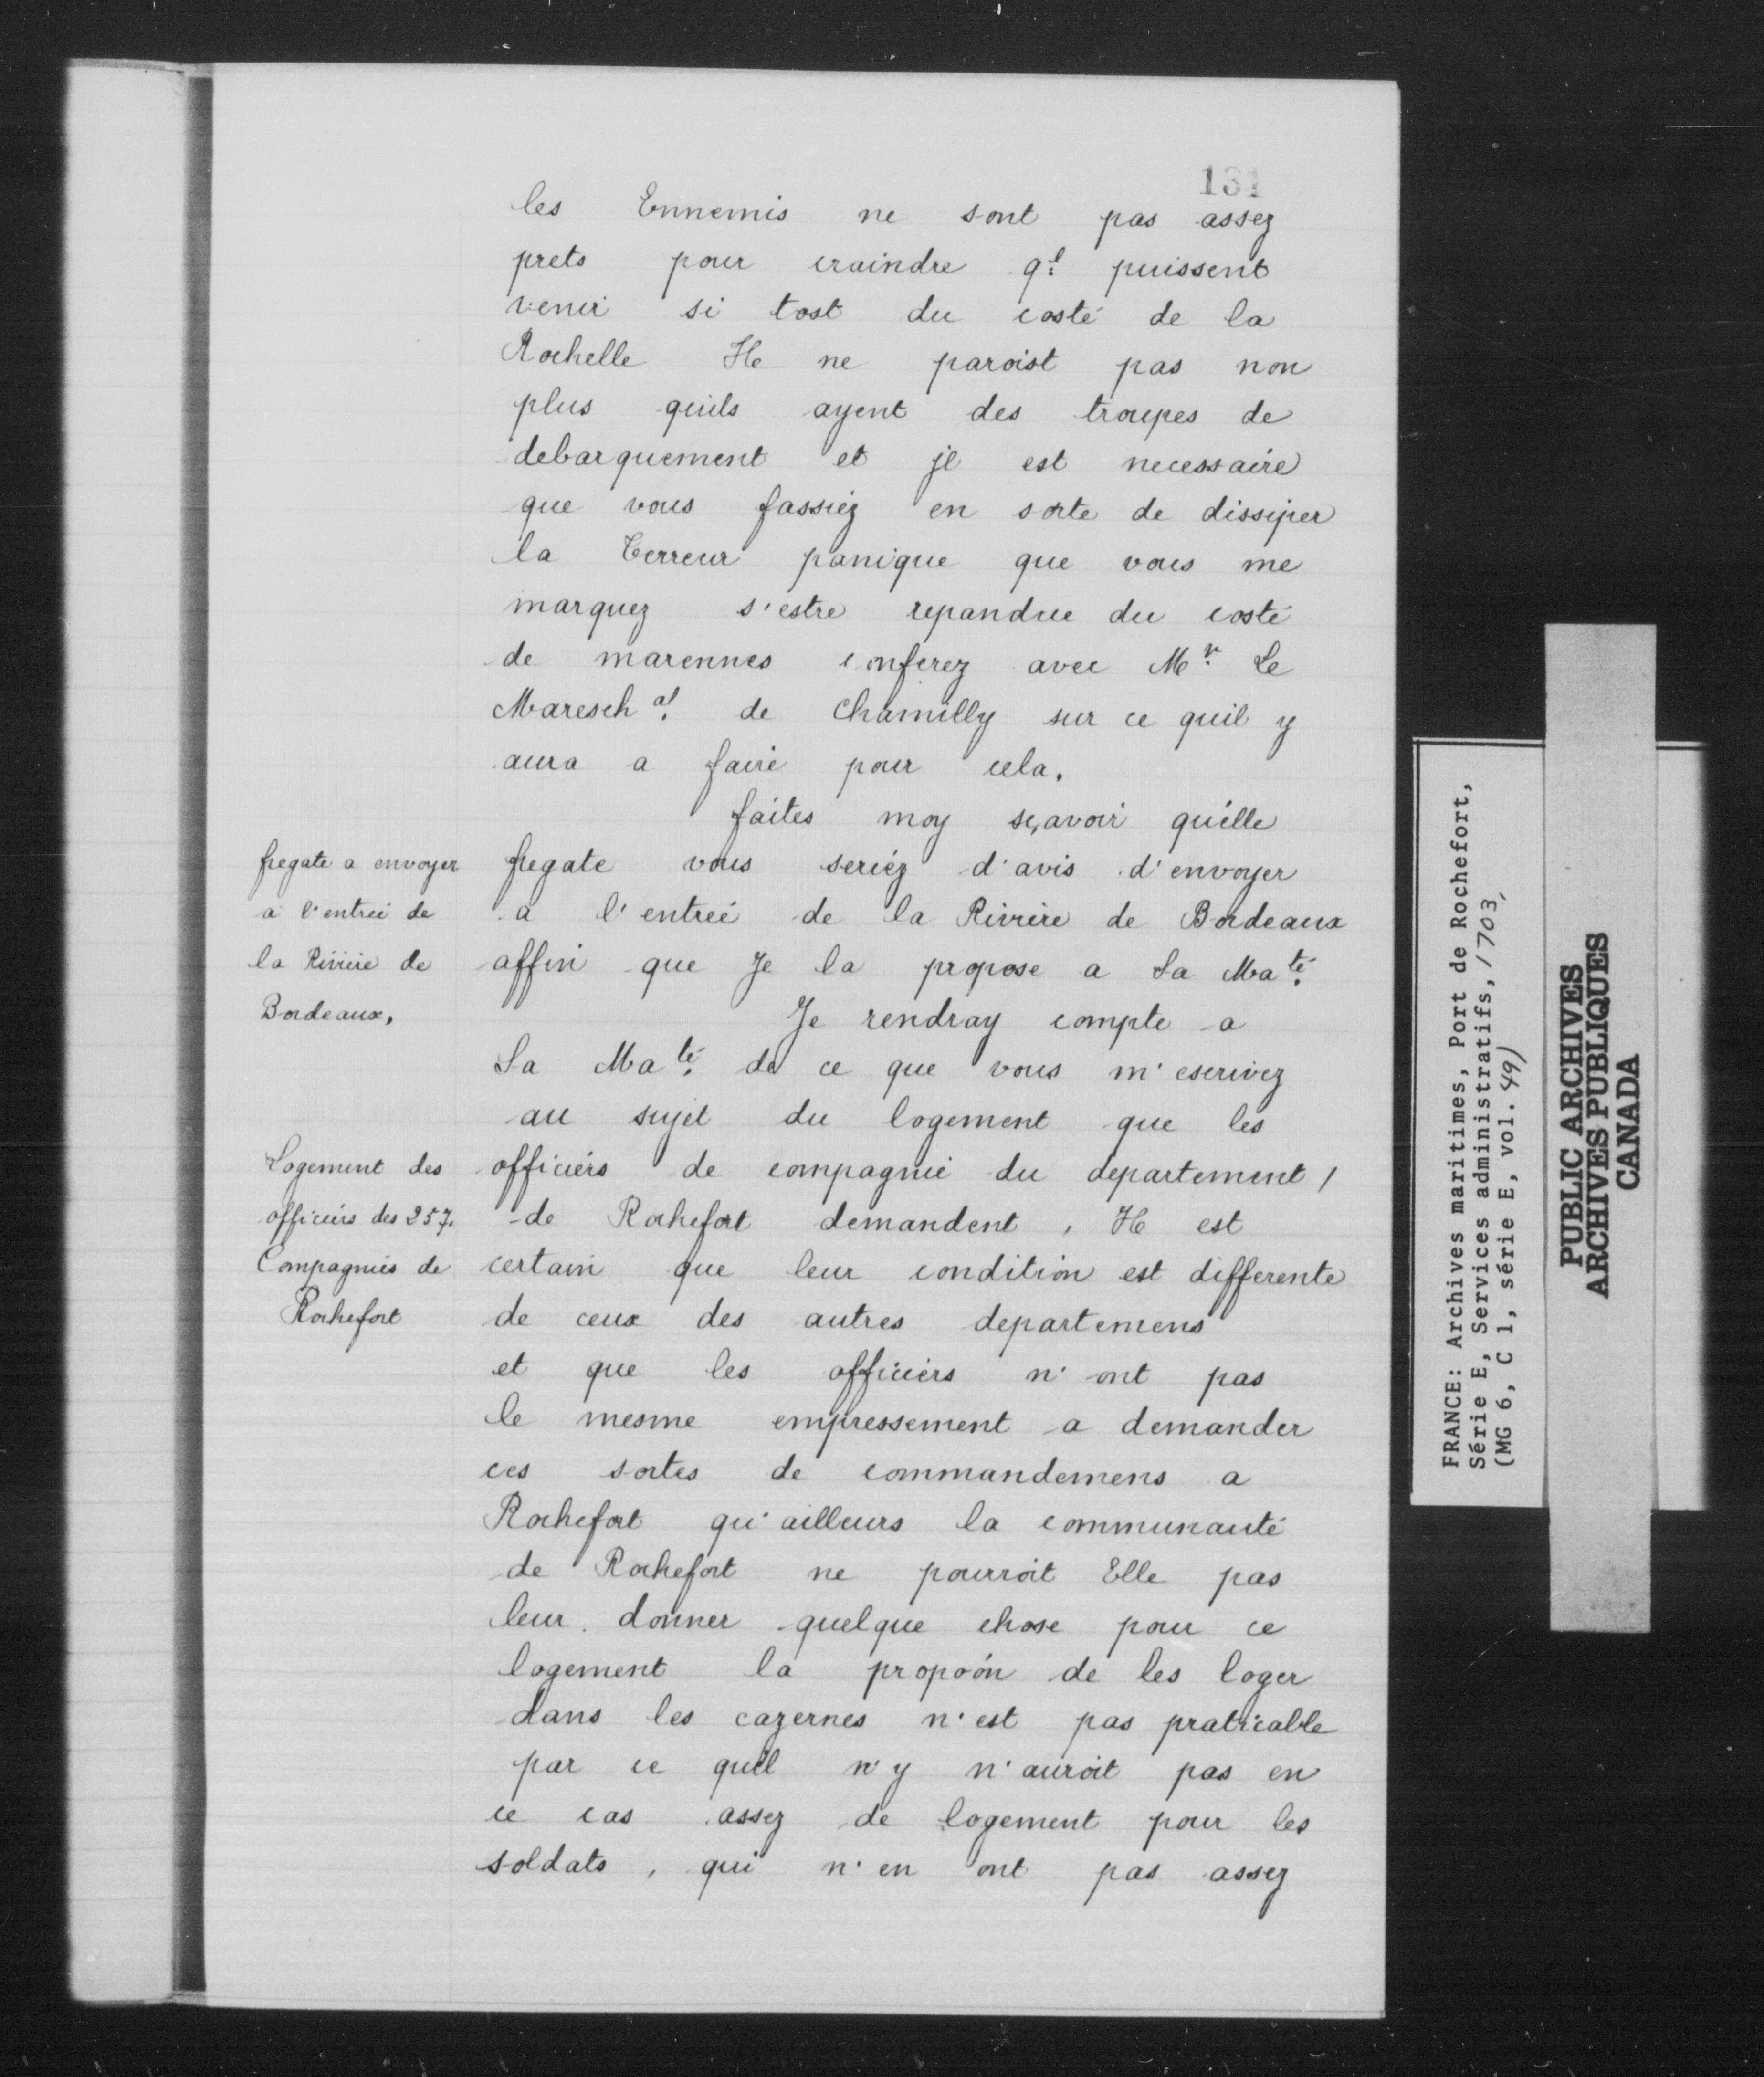 131
les Ennemis ne sont pas assez
prets pour craindre q.l puissent
venir si tost du costé de la
Rochelle Il ne paroist pas non
plus quils ayent des troupes de
debarquement et jl est necessaire
que vous fassiez en sorte de dissiper
la Terreur panique que vous me
marquez s'estre repandue du costé
de marennes conferez avec M.r Le
Maresch.al de Chamilly sur ce quil y
aura a faire pour cela.
faites moy sçavoir quelle
fregate a envoyer
a l'entreé de
la Riviere de
Bordeaux,
fregate vous seriez d'avis d'envoyer
a l'entreé de la Riviere de Bordeaux
affin que Je la propose a Sa Ma.té
Je rendray compte a
Sa Ma.té de ce que vous m'escrivez
au sujet du logement que les
Logement des
officiers des 257.
Compagnies de
Rochefort
officiers de compagnie du departement /
de Rochefort demandent, Il est
certain que leur condition est differente
de ceux des autres departemens
et que les officiers n'ont pas
le mesme empressement a demander
ces sortes de commandemens a
Rochefort qu'ailleurs la communauté
de Rochefort ne pourroit Elle pas
leur donner quelque chose pour ce
logement la propoón de les loger
dans les cazernes n'est pas praticable
par ce quil n'y n'auroit pas en
ce cas assez de logement pour les
soldats, qui n'en ont pas assez
FRANCE: Archives maritimes, Port de Rochefort,
Série E, Services administratifs, 1703,
(MG 6, C 1, série E, vol. 49)
PUBLIC ARCHIVES
ARCHIVES PUBLIQUES
CANADA